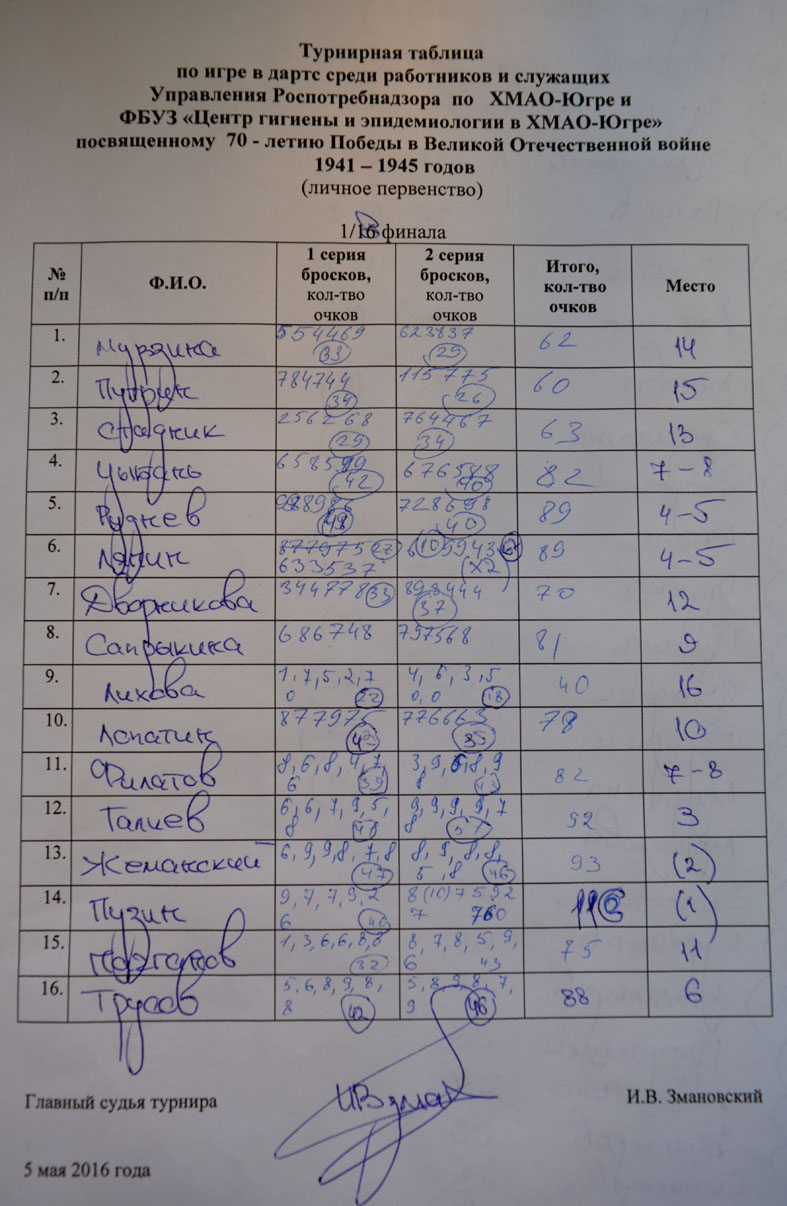 Турнирная таблица
по игре в дартс среди работников и служащих
Управления Роспотребнадзора по ХМАО-Югре и
ФБУЗ «Центр гигиены и эпидемиологии в ХМАО-Югре»
посвященному 70 - летию Победы в Великой Отечественной войне
1941 – 1945 годов
(личное первенство)
1/16 финала
№ п/п Ф.И.О. 1 серия бросков, кол-тво очков 2 серия бросков, кол-тво очков Итого, кол-тво очков Место
1. Мурзина 554469 33 623837 29 62 14
2. 784744 34 115775 26 60 15
3. Стадник 256268 29 764467 34 63 13
4. Цыкань 42 676588 40 82 7-8
5. Руднев 49 728698 40 89 4-5
6. Лялин 877975 27 89 4-5
633537 (x2)
7. Дворникова 344778 33 37 70 12
8. Сапрыкина 686748 797568 81 9
9. Лихова 1,7,5,2,7 4, 6, 3,5 40 16
0 22 0,0 18
10. Лопатин 877975 43 776663 35 78 10
11. Филатов 8,6,8,4,7, 82 7-8
6 39 8 43
12. Талиев 6,6,7,9,5, 9,9,9,9,7 92 3
8 41 8 51
13. Жеманский 6,9,9,8,7,8 8, 9, 8,8, 93 (2)
47 5,8 46
14. Пузин 9,7,7,9,2 8(10)7592 (1)
6 40 7
15. 1,3,6,6,8,8 8,7,8,5,9, 75 11
32 6 43
16. Трусов 5,6,8,9,8, 5,8,9,8,7, 88 6
8 42 9 46
Главный судья турнира И.В. Змановский
5 мая 2016 года